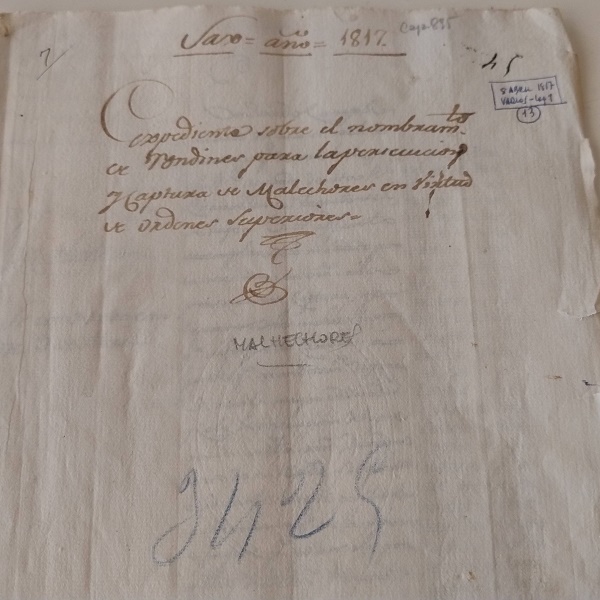 Sax = año = 1817. Caja 835
45
8 ABRIL 1817
VARIOS - Leg 8
13
Expediente sobre el nombram.to
de Rondines para la persecucion
y Captura de Malechores en virtud
de ordenes Superiores.
MALHECHORES
2425